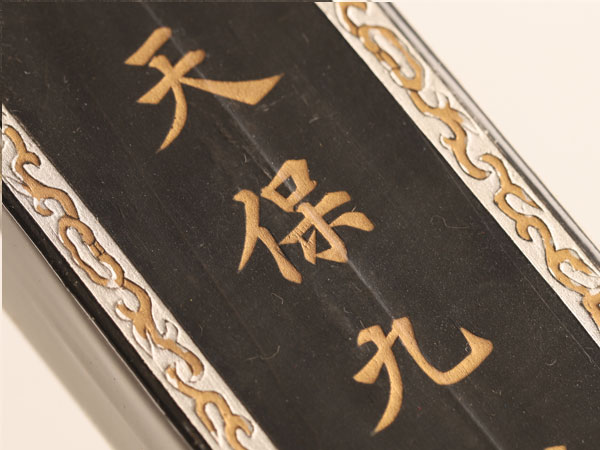 天保九